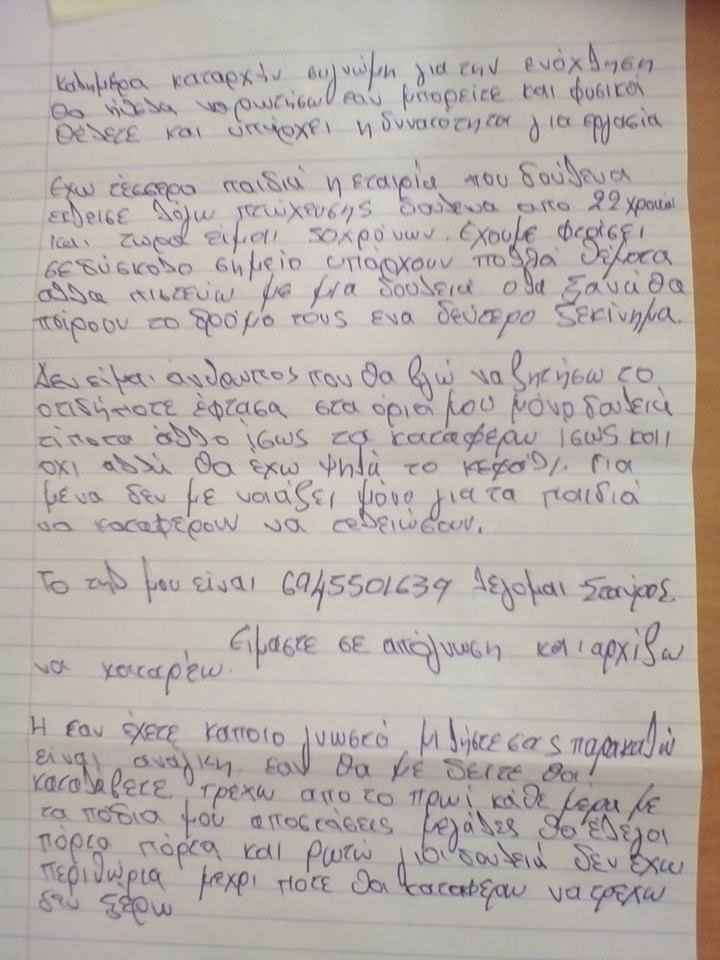 καλημέρα καταρχήν συγνώμη για την ενόχληση
θα ήθελα να ρωτήσω εαν μπορείτε και φυσικά
θέλετε και υπάρχει η δυνατότητα για εργασία
Εχω τέσσερα παιδιά η εταιρία που δούλευα
έκλεισε λόγω πτώχευσης δούλευα απο 22 χρονών
και τωρα είμαι 50 χρόνων. Εχουμε φτάσει
σε δύσκολο σημείο υπάρχουν πολλά θέματα
αλλα πιστεύω με μια δουλεια ολα ξανά θα
πάρουν το δρόμο τους ενα δεύτερο ξεκίνημα.
Δεν είμαι άνθρωπος που θα βγώ να ζητήσω το
οτιδήποτε έφτασα στα όρια μου μόνο δουλειά
τίποτα άλλο ίσως τα καταφέρω ίσως και
όχι αλλά θα έχω ψηλά το κεφάλι. Για
μένα δεν με νοιάζει μόνο για τα παιδιά
να καταφέρουν να τελειώσουν.
Το τηλ μου είναι 6945501639 λέγομαι Σταύρος
Είμαστε σε απόγνωση και αρχίζω
να καταρέω.
Η εαν έχετε κάποιο γνωστό μιλήστε σας παρακαλώ
είναι ανάγκη εαν θα με δείτε θα
καταλάβετε τρεχω απο το πρωί κάθε μερα με
τα πόδια μου αποστάσεις μεγάλες
πόρτα πόρτα και ρωτώ για δουλειά δεν έχω
περιθώρια μεχρι πότε θα καταφέρω να τρέχω
δεν ξέρω